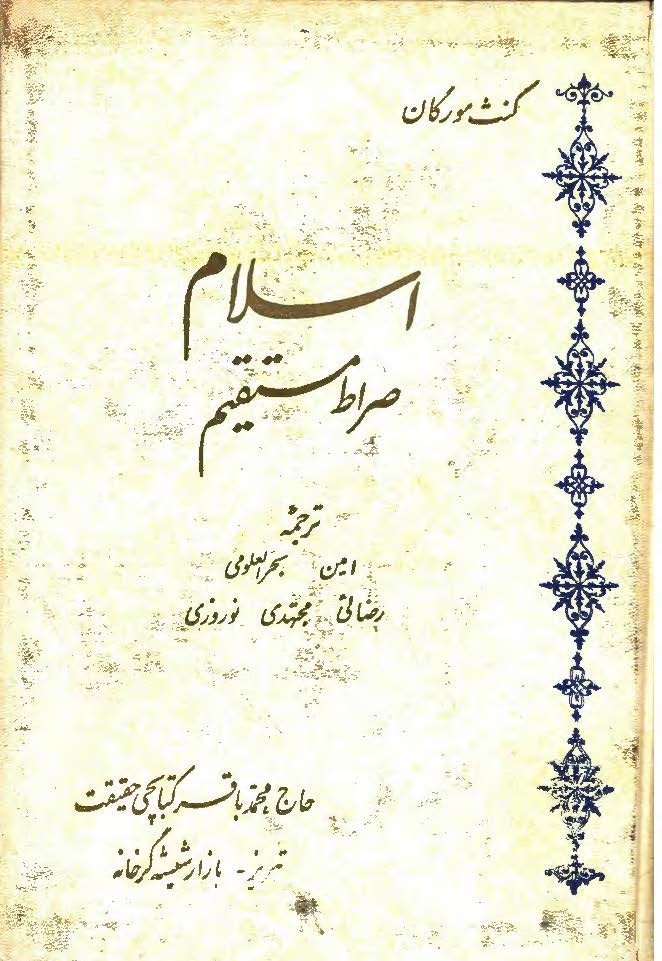 کنث مورگان
اسلام
صراط مستقیم
ترجمهٔ
امین بحرالعلومی
رضائی مجتهدی نوروزی
حاج محمد باقر کتابچی حقیقت
تبریز - بازار شیشه گرخانه